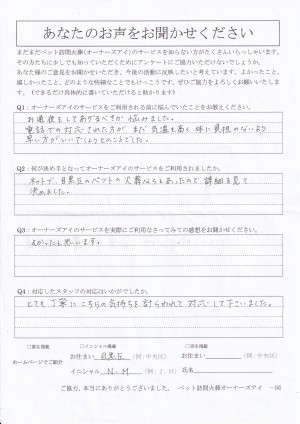 あなたのお声をお聞かせください
まだまだペット訪問火葬(オーナーズアイ)のサービスを知らない方がたくさんいらっしゃいます。
その方たちにも少しでも知っていただくためにアンケートにご協力いただけないでしょうか。
あなた様のご意見をお聞かせいただき、今後の活動に反映したいと考えています。よかったこと、
嬉しかったこと、どのような些細なことでもけっこうです。ぜひご協力をよろしくお願いいたします。
(できるだけ具体的に書いていただけると助かります)
Q1:オーナーズアイのサービスをご利用される前に悩んでいたことをお教えください。
お通夜をしてあげるべきか悩みました。
電話での対応された方が まだ気温も高く体に負担のないより
早い方がいいでしょうとのことでした。
Q2:何が決め手となってオーナーズアイのサービスをご利用されましたか。
ネットで、目黒区のペットの火葬なら とあったので詳細を見て
決めました。
Q3:オーナーズアイのサービスを実際にご利用なさってみての感想をお聞かせください。
よかったと思います。
Q4:対応したスタッフの対応はいかがでしたか。
とても丁寧に、こちらの気持ちを計らわれて対応して下さいました。
□匿名掲載 □イニシャル掲載 □実名掲載
お住まい 目黒区 (例:中央区) お住まい (例:中央区)
ホームページでご紹介
イニシャル N.M (例:J.H) 氏名
ご協力、本当にありがとうございました。 ペット訪問火葬オーナーズアイ 一同